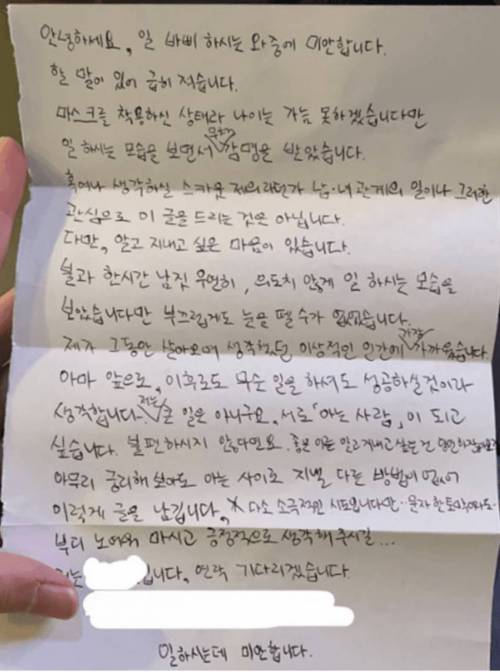 안녕하세요, 일 바삐 하시는 와중에 미안합니다.
할 말이 있어 급히 적습니다.
마스크를 착용하신 상태라 나이는 가늠 못하겠습니다만
일 하시는 모습을 보면서 무척 감명을 받았습니다.
혹여나 생각하실 스카웃 제의라던가 남·녀 관계의 일이나 그러한
관심으로 이 글을 드리는 것은 아닙니다.
다만, 알고 지내고 싶은 마음이 있습니다.
불과 한시간 남짓 우연히, 의도치 않게 일 하시는 모습을
보았습니다만 부끄럽게도 눈을 뗄 수가 없었습니다.
제가 그동안 살아오며 생각했던 이상적인 인간에 가장 가까웠습니다.
아마 앞으로, 이후로도 무슨 일을 하셔도 성공하실 것이라
생각합니다. 저는 큰 일은 아니구요, 서로 「아는 사람」이 되고
싶습니다. 불편하시지 않다면요. 좋은 이를 알고 지내고 싶은 건 당연하잖아요
아무리 궁리해 보아도 아는 사이로 지낼 다른 방법이 없어
이렇게 글을 남깁니다. 다소 소극적인 시도입니다만. 문자 한 통이라도
부디 노여워 마시고 긍정적으로 생각해 주시길...
입니다, 연락 기다리겠습니다.
일하시는데 미안합니다.